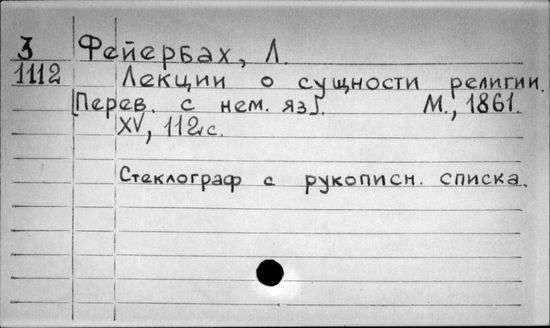 3 Фейербах, Л.
1112 Лекции о сущности религии.
[Перев. с нем. яз]. М., 1861.
XV, 112 с.
Стеклограф с рукописн. списка.